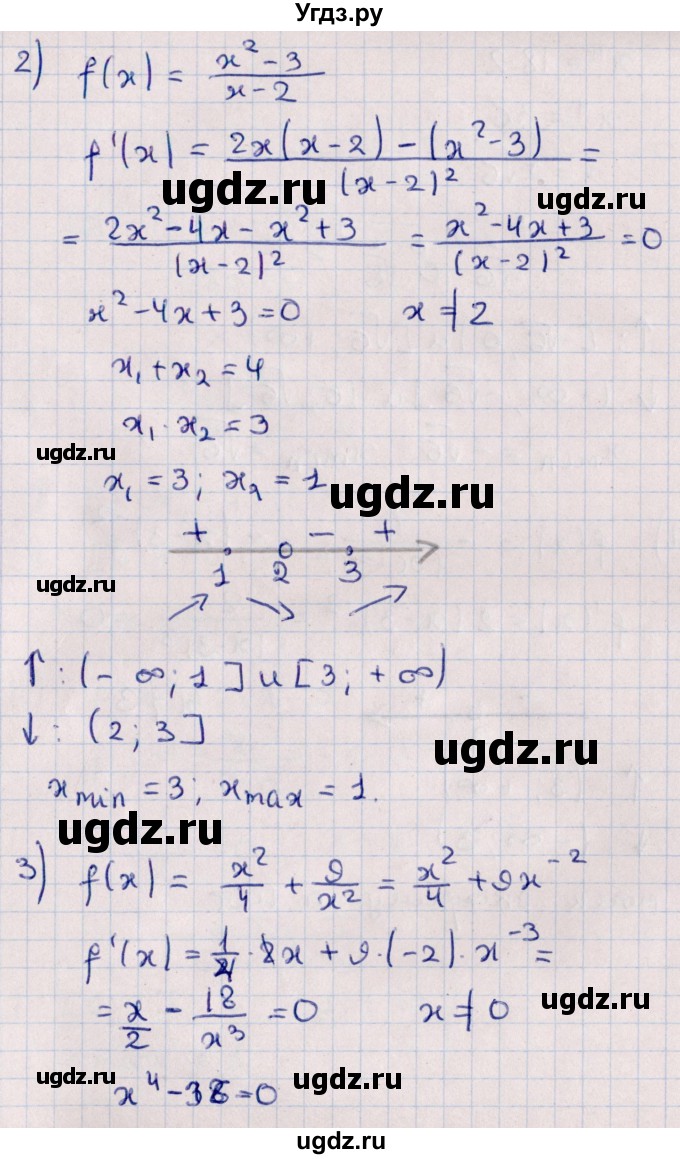 Угдз.ру
2) f(x) = (x² - 3)/(x - 2)
f'(x) = (2x(x - 2) - (x² - 3))/(x - 2)² =
ugdz.ru
ugdz.ru
= (2x² - 4x - x² + 3)/(x - 2)² = (x² - 4x + 3)/(x - 2)² = 0
x² - 4x + 3 = 0 x ≠ 2
x₁ + x₂ = 4
x₁ · x₂ = 3
ugdz.ru
x₁ = 3; x₂ = 1
ugdz.ru
+ - +
1 2 3
ugdz.ru
↗ ↘ ↗
↑: (-∞; 1] ∪ [3; +∞)
↓: (2; 3]
ugdz.ru
xmin = 3; xmax = 1.
ugdz.ru
3) f(x) = x²/4 + 9/x² = x²/4 + 9x⁻²
f'(x) = 1/4 · 2x + 9 · (-2) · x⁻³ =
ugdz.ru
= x/2 - 18/x³ = 0 x ≠ 0
ugdz.ru
ugdz.ru
ugdz.ru
x⁴ - 36 = 0
ugdz.ru